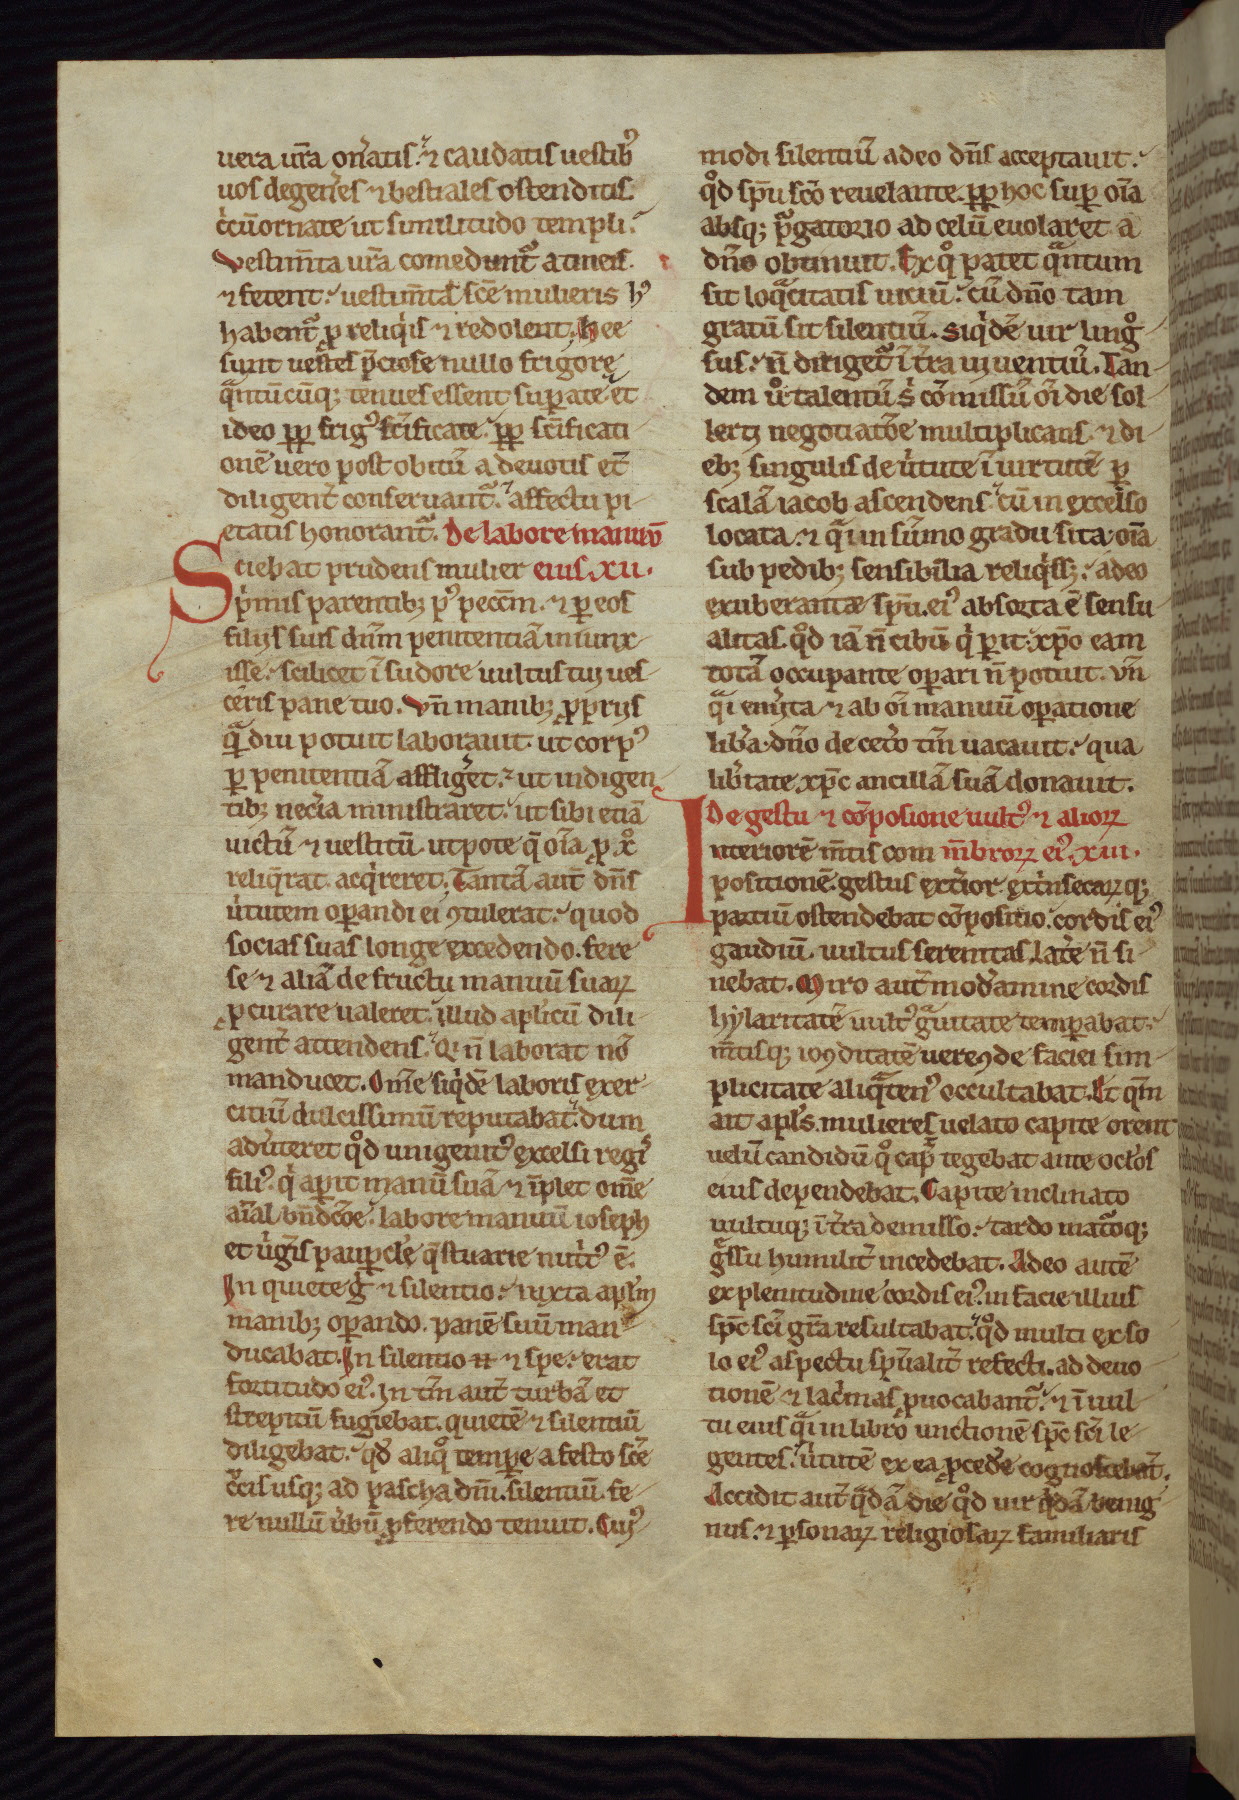 uera ur̄a orn̄atis. ⁊ caudatis uestib᷒
uos degen̄es ⁊ bestiales ostenditis
c̓cūornate ut similitudo templi.
Vestim̄ta ur̄a comedunt᷑ a tineis.
⁊ fetent. uestim̄ta sc̄e mulieris h᷒
habent᷑ ꝓ reliq̓is ⁊ redolent. Hee
sunt uestes p̄ciose nullo frigore
q̄ntūcūq; tenues essent suꝑate et
ideo ꝓpꝑ frig᷒ sc̄ificate. ꝓpꝑ sc̄ificati
onē uero post obitū a deuotis et̄
diligent̄ conseruant᷑. affectu pi
etatis honorant᷑. De labore manuū
Sciebat prudens mulier eius. xii.
p̓mis parentib; p᷒ pecc̄m. ⁊ ꝑ eos
filijs suis dn̄m penitentiā iniunx
isse. scilicet ī sudore uultus tui ues
cēris pane tuo. Vn̄ manib; ꝓprijs
q̄ diu potuit laborauit. ut corp᷒
ꝑ penitentiā affliḡet. ⁊ ut indigen
tib; nec̄ia ministraret. ut sibi etiā
uictū ⁊ uestitū utpote q̄ oīa ꝓ xo
reliq̄rat acq̓reret. Tantā aut̄ dn̄s
ūtutem oꝑandi ei ꝯtulerat. quod
socias suas longe excedendo. fere
se ⁊ aliā de fructu manuū suaꝝ
ꝓcurare ualeret. illud apl̓icū dili
gent̄ attendens. Qi n̄ laborat nō
manducet. Om̄e siq̓dē laboris exer
citiū dulcissimū reputabat. dum
adūteret qͦd unigenit᷒ excelsi regi᷒
fili᷒. q̓ aꝑit manū suā ⁊ īplet om̄e
aīal bn̄dc̄oe. labore manuū ioseph
et ūḡis pauꝑcl̄e q̄stuarie nut̓t᷒ ē.
In quiete ḡ ⁊ silentio. iuxta apl̄m
manib; oꝑando. panē suū man
ducabat. In silentio ⁊ ⁊ spe. erat
fortitudo ei᷒. In tm̄ aut̄ turbā et
strepitū fugiebat. quietē ⁊ silentiū
diligebat. qd̄ aliqͦ tempe a festo sc̄e
c̓cis usq; ad pascha dn̄i. silentiū. fe
re nullū ūbū ꝓferendo tenuit. Cui᷒
modi silentiū adeo dn̄s acceptauit.
qͦd sp̄u sc̄o reuelante. ꝓpꝑ hoc suꝑ oīa
absq; p̄gatorio ad celū euolaret a
dn̄o obtinuit. Ex qͦ patet q̄ntum
sit loq̄citatis uiciū. cū dn̄o tam
gratū sit silentiū. Siq̓dē uir lingͦ
sus. n̄ diriget᷑ ī t̄ra uiuentiū. Tan
dem uͦ talentū s̓ cōmissū oī die sol
lerti negotiatōe multiplicans. ⁊ di
eb; singulis de ūtute ī uirtutē ꝑ
scalā iacob ascendens. cū in excelso
locata. ⁊ q̄i in sūmo gradu sita. oīa
sub pedib; sensibilia reliq̓ss;. adeo
exuberantæ sp̄u. ei᷒ absorta ē sensu
alitas. qͦd iā n̄ cibū q̓ ꝑit. xp̄o eam
totā occupante oꝑari n̄ potuit. vn̄
q̄i em̄ita ⁊ ab oī manuū oꝑatione
lib̄a. dn̄o de cet̄o tm̄ uacauit. qua
lib̄tate xp̄c ancillā suā donauit.
De gestu ⁊ cōposione uult᷒ ⁊ alioꝝ
Interiorē m̄tis com m̄broꝝ ei᷒. xiii.
positionē. gestus ext̄ior ext̓nsecaꝝq;
partiū ostendebat cōpositio. cordis ei᷒
gaudiū. uultus serenitas latē n̄ si
nebat. Miro aut̄ mod̄amine cordis
hylaritatē uult᷒ g̓uitate temꝑabat.
m̄tisq; iocūditatē uerecūde faciei sim
plicitate aliq̄ten᷒ occultabat. Et qm̄
ait apl̄s. mulieres uelato capite orent
uelū candidū qͦ cap̄ tegebat ante ocl̄os
eius dependebat. Capite inclinato
uultuq; ī t̄ra demisso. tardo maturoq;
g̓ssu humilit̄ incedebat. Adeo autē
ex plenitudine cordis ei᷒. in facie illius
sp̄c sc̄i gr̄a resultabat. qͦd multi ex so
lo ei᷒ aspectu sp̄ualit̄ refecti. ad deuo
tionē ⁊ lac̓mas ꝓuocabant᷑. ⁊ ī uul
tu eius q̄i in libro unctionē sp̄c sc̄i le
gentes. ūtutē ex ea ꝓced̄e cognoscebāt.
Accidit aut̄ q̄dā die qͦd uir q̓dā benig
nus. ⁊ ꝑsonaꝝ religiosaꝝ familiaris